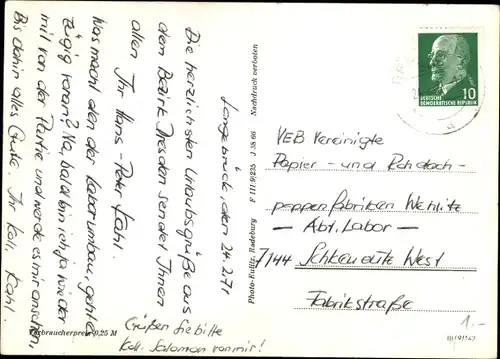 Langebrück, den 24.2.71
Die herzlichsten Urlaubsgrüße aus
dem Bezirk Dresden sendet Ihnen
allen Ihr Hans-Peter Kahl.
Was macht denn der Laborumbau, geht es
zügig voran? Na, bald bin ich ja wieder
mit von der Partie und werde es mir ansehen.
Bis dahin alles Gute. Ihr Koll. Kahl.
Grüßen Sie bitte
Koll. Salomon von mir!
Verbraucherpreis 0,25 M
Photo-Kulitz, Radeburg F III/9/235 J 35 66 Nachdruck verboten
10
DEUTSCHE
DEMOKRATISCHE REPUBLIK
VEB Vereinigte
Papier- und Rohdach-
pappenfabriken Wehlitz
- Abt. Labor -
7144 Schkeuditz West
Fabrikstraße
1.-